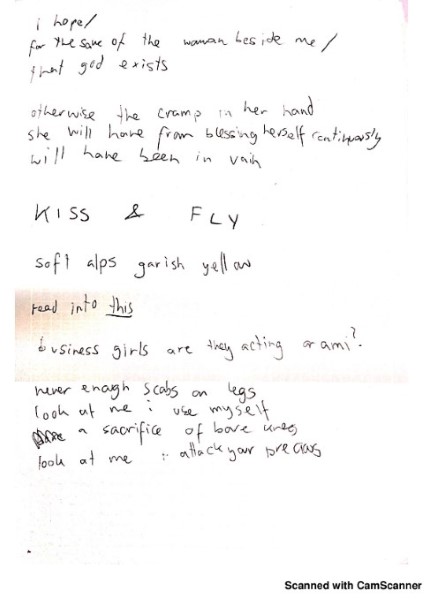 i hope/
for the sake of the woman beside me/
that god exists
otherwise the cramp in her hand
she will have from blessing herself continuously
will have been in vain
KISS & FLY
soft alps garish yellow
read into this
business girls are they acting or am i?
never enough scabs on legs
look at me i use myself
a sacrifice of bare knees
look at me i attack your precious
Scanned with CamScanner